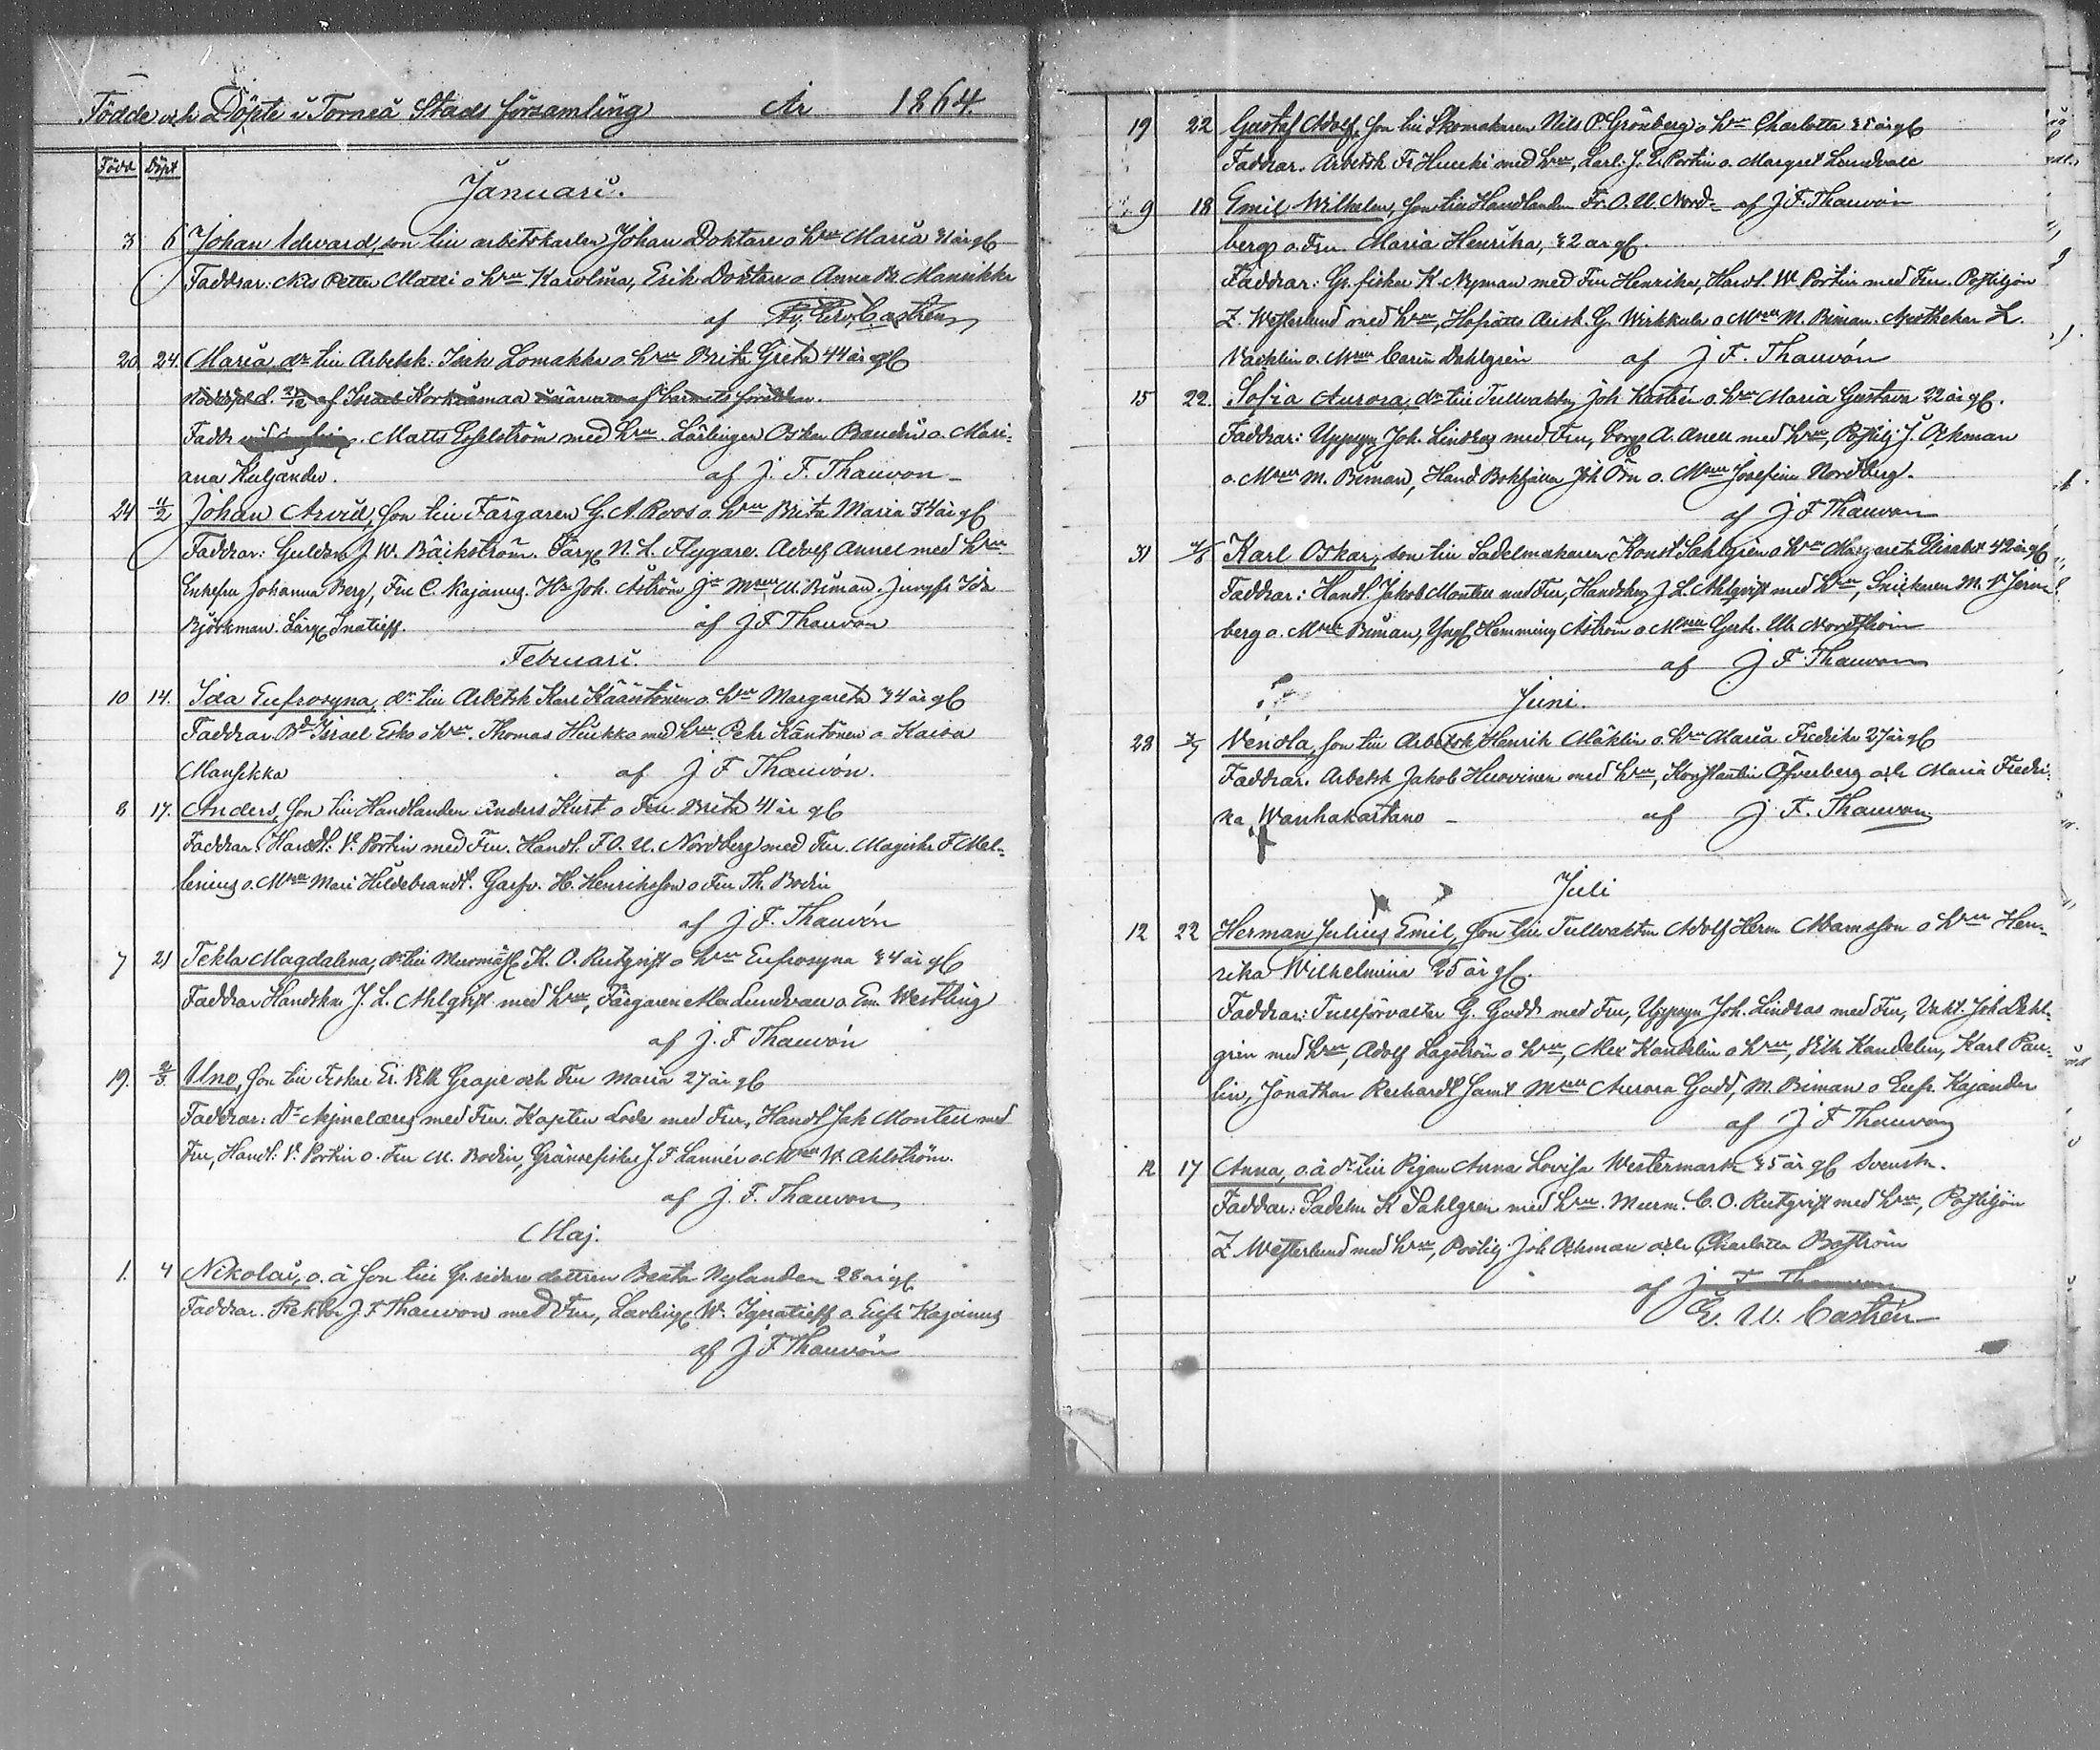 Födde och Döpte i Torneå Stads församling År 1864.
Född Döpt
Januari.
3 6 Johan Edward, son till arbetskarlen Johan Doktare o hru Maria 31 år gl
Faddrar: Nils Petter Matti o hru Karolina, Erik Doktare o Anna Br. Mansikka
af Castrén
20 24. Maria dr till Arbetsk: Isak Lomakka o hru Brita Greta 44 år gl
d. 21/12 af föräldrar.
Faddr Matts med hru. Lärlingen Oskar Baudin o. Mari-
ana af J. F. Thauvon
24 11/2 Johan Arvid, son till Färgaren G. A. Roos o. hru Brita Maria 34 år gl
Faddrar: Guldsm J. W. Bäckström. Färg N. L. Flygare. Adolf Annel med hru
Enkefru Johanna Berg, Fru C. Kajanus. Hr Joh. Åström Jr Mmll M. Biman. Jungfr Ida
Björkman. Lärg Inatieff. af J F Thauvon
Februari.
10 14. Ida Eufrosyna, dr till Arbetsk Karl Kääntönen o. hru Margareta 34 år gl
Faddrar Bd Israel Esko o hru. Thomas Heikka med hru Pehr Käntönen o Kaisa
Mansikka af J F Thauvón.
8 17. Anders, son till Handlanden Anders Kurt o Fru Brita 41 år gl
Faddrar: Handl: V. Portin med Fru. Handl. F. O. U. Nordberg med Fru. Magister F Mel-
lenius o. Mmll Mari Hildebrandt. Garfv. H. Henriksson o Fru Th. Bodin
af J. F. Thauvón
7 21 Tekla Magdalena, dr till Murmäst K. O. Rutqvist o hru Eufrosyna 34 år gl
Faddrar Handskm J. L. Ahlqvist med hru, Färgaren Alex Lundvall o Em. Westling
af J. F Thauvón
19. 2/3. Uno, son till Fiskal Er. Vilh Grape och Fru Maria 27 år gl
Faddrar: Dr Nymelæus med Fru. Kapten Lode med Fru, Handl Jak Montell med
Fru, Handl: V. Portin o. Fru M. Bodin, Gränsefiskal J. F. Lannér o. Mmll W. Ahlström.
af J. F. Thauvon
Maj.
1. 4 Nikolai, o. ä son till Gr. ridare dottren Beata Nylander 28 år gl
Faddrar. Rektor J. F Thauvon med Fru, Lärling W. Ignatieff o. Eufr Kajanus
af J F Thauvón
19 22 Gustaf Adolf, son till Skomakaren Nils P. Grönberg o hru Charlotta 35 år gl
Faddrar. Arbetsk Fr Huuki med hru, Lärl. J. E. Portin o. Margret Lundvall
9 18 Emil Wilhelm, son till Handlanden Fr. O. U. Nord- af J F Thauvón
berg o. Fru Maria Henrika, 32 år gl.
Faddrar: Gr. fiskal K. Nyman med Fru Henrika, Handl. W. Portin med Fru. Postiljon
Z. Westerlund med hru, Hofrätts Ausk. G. Wirkkula o Mmll M. Biman. Apothekar L.
Vacklin o. Mmll Carin Dahlgrén af J F. Thauvón
15 22. Sofia Aurora, dr till Tullvakten Joh Kastén o. hru Maria Gustava 22 år gl.
Faddrar: Uppsyn Joh. Lindras med Fru, A. Anell med hru, Postilj J. Ockman
o. Mmll M. Biman, Hand. Bokhåller Joh Örn o. Mmll Josefina Nordberg.
af J F Thauvon
31 Karl Oskar, son till Sadelmakaren Konst Sahlgren o hru Margareta Elisabet 42 år gl
Faddrar: Handl. Jakob Montell med Fru, Handskm J. L. Ahlqvist med hru, Snickaren M. V. Jern-
berg o. Mmll Biman, Yngl Hemming Åström o Mmll Gertr. Ul. Norstöm
af J F. Thauvon
Juni.
28 3/7 Vendla, son till Arbetsk Henrik Mäklin o. hru Maria Fredrika 27 år gl
Faddrar. Arbetsk Jakob Huovinen med hru, Konstantin Öfverberg och Maria Fredri-
ka Wanhakartano af J. F. Thauvon
Juli
12 22 Herman Julius Emil, son till Tullvakten Adolf Herm Adamsson o hru Hen-
rika Wilhelmina 25 år gl.
Faddrar: Tullförvalter G. Gadd med Fru, Uppsyn Joh. Lindras med Fru, Vakt. Joh Dahl-
grén med hru, Adolf Lagström o hru, Alex Kandelin o hru, Vilh Kandelin, Karl Pau-
lin, Jonathan Richardt samt Mmll Aurora Gadd, M. Biman o Eufr. Kajander
af J F Thauvon
12 17 Anna, o. ä dr till Pigan Anna Lovisa Westermark 35 år gl Svensk.
Faddrar: Sadelm K Sahlgren med hru. Murm. C. O. Rutqvist med hru, Postiljon
Z. Westerlund med hru, Postilj. Joh Ockman och Charlotta Boström
af J. F Thauvon
E. U. Castrén